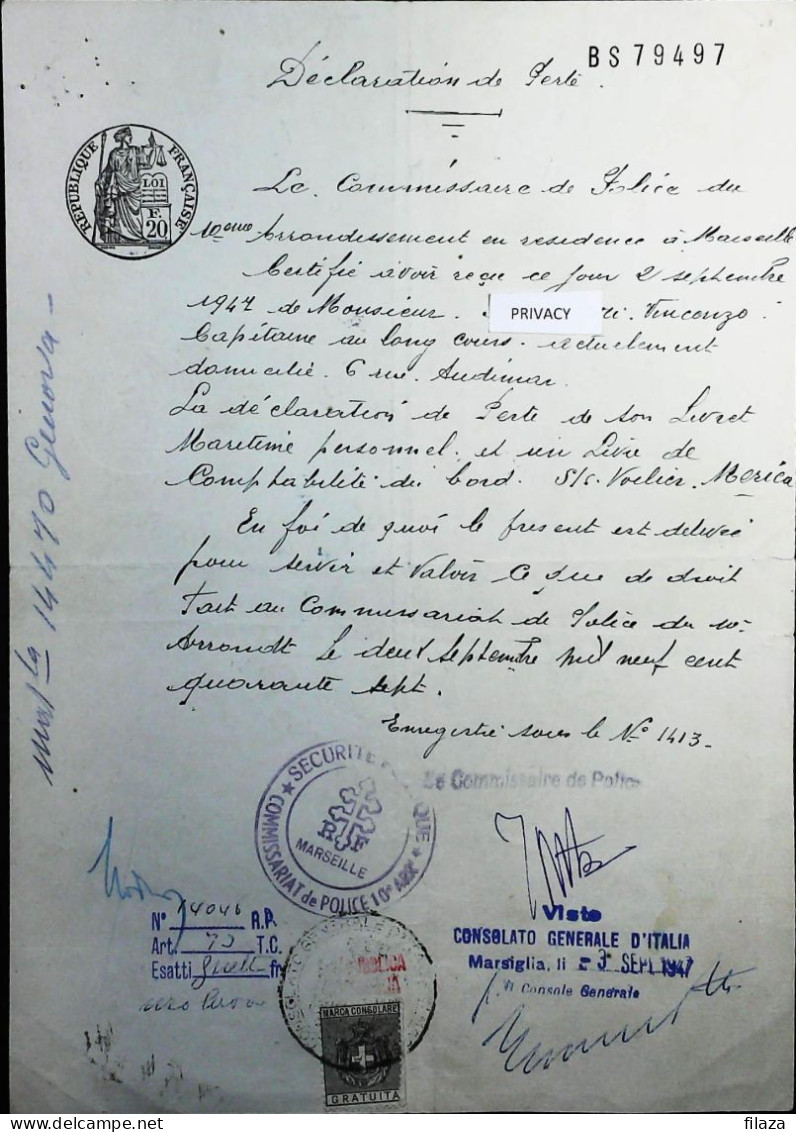 BS 79497
Déclaration de Perte.
RÉPUBLIQUE FRANÇAISE
LOI
F.
20
Le Commissaire de Police du
10eme Arrondissement en residence à Marseille
Certifie avoir reçu ce jour 2 septembre
1947 de Monsieur. PRIVACY Vincenzo.
Capitaine au long cours. actuelement
domicilié. 6 rue. Audimar.
La déclaration de Perte de son Livret
Maretime personnel. et un Livre de
Comptabilité du bord. S/c. Voilier. Merica
En foi de quoi le present est delivré
pour servir et valoir ce que de droit
Fait au Commissariat de Police du 10e
Arrondt le deux septembre mil neuf cent
quarante sept.
Enregistré sous le No 1413.
Le Commissaire de Police
14470 Genova
SECURITE QUE
COMMISSARIAT de POLICE 10e ARRt
R F
MARSEILLE
N° 14046 R.P.
Art. 73 T.C.
Esatti fr
Visto
CONSOLATO GENERALE D'ITALIA
Marsiglia, li 3 SET. 1947
Il Console Generale
MARCA CONSOLARE
GRATUITA
filaza